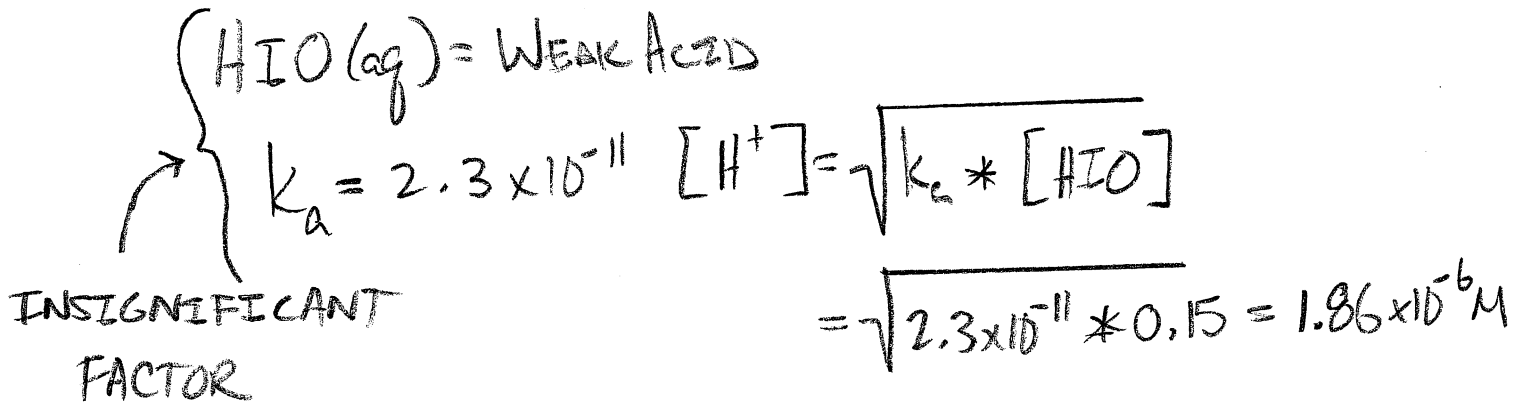 HIO(aq) = WEAK ACID
kₐ = 2.3 x10⁻¹¹ [H⁺] = √kₐ * [HIO]
INSIGNIFICANT
FACTOR
= √2.3x10⁻¹¹ * 0.15 = 1.86 x10⁻⁶ M